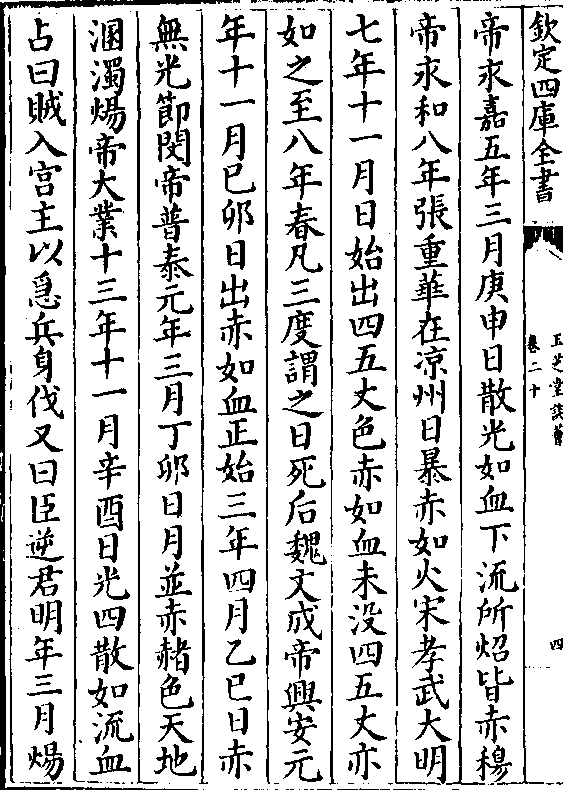 欽定四庫全書
玉芝堂談薈
卷二十
四
帝永嘉五年三月庚申日散光如血下流所炤皆赤穆
帝永和八年張重華在凉州日暴赤如火宋孝武大明
七年十一月日始出四五丈色赤如血未没四五丈亦
如之至八年春凡三度謂之日死后魏文成帝興安元
年十一月巳卯日出赤如血正始三年四月乙巳日赤
無光節閔帝普泰元年三月丁卯日月並赤赭色天地
溷濁煬帝大業十三年十一月辛酉日光四散如流血
占曰賊入宫主以急兵身伐又曰臣逆君明年三月煬